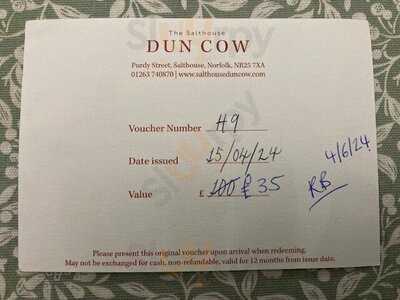 The Salthouse
DUN COW
Purdy Street, Salthouse, Norfolk, NR25 7XA
01263 740870 | www.salthouseduncow.com
Voucher Number H9
Date issued 15/04/24
4/6/24
Value £ 100 £ 35
RB
Please present this original voucher upon arrival when redeeming.
May not be exchanged for cash, non-refundable, valid for 12 months from issue date.